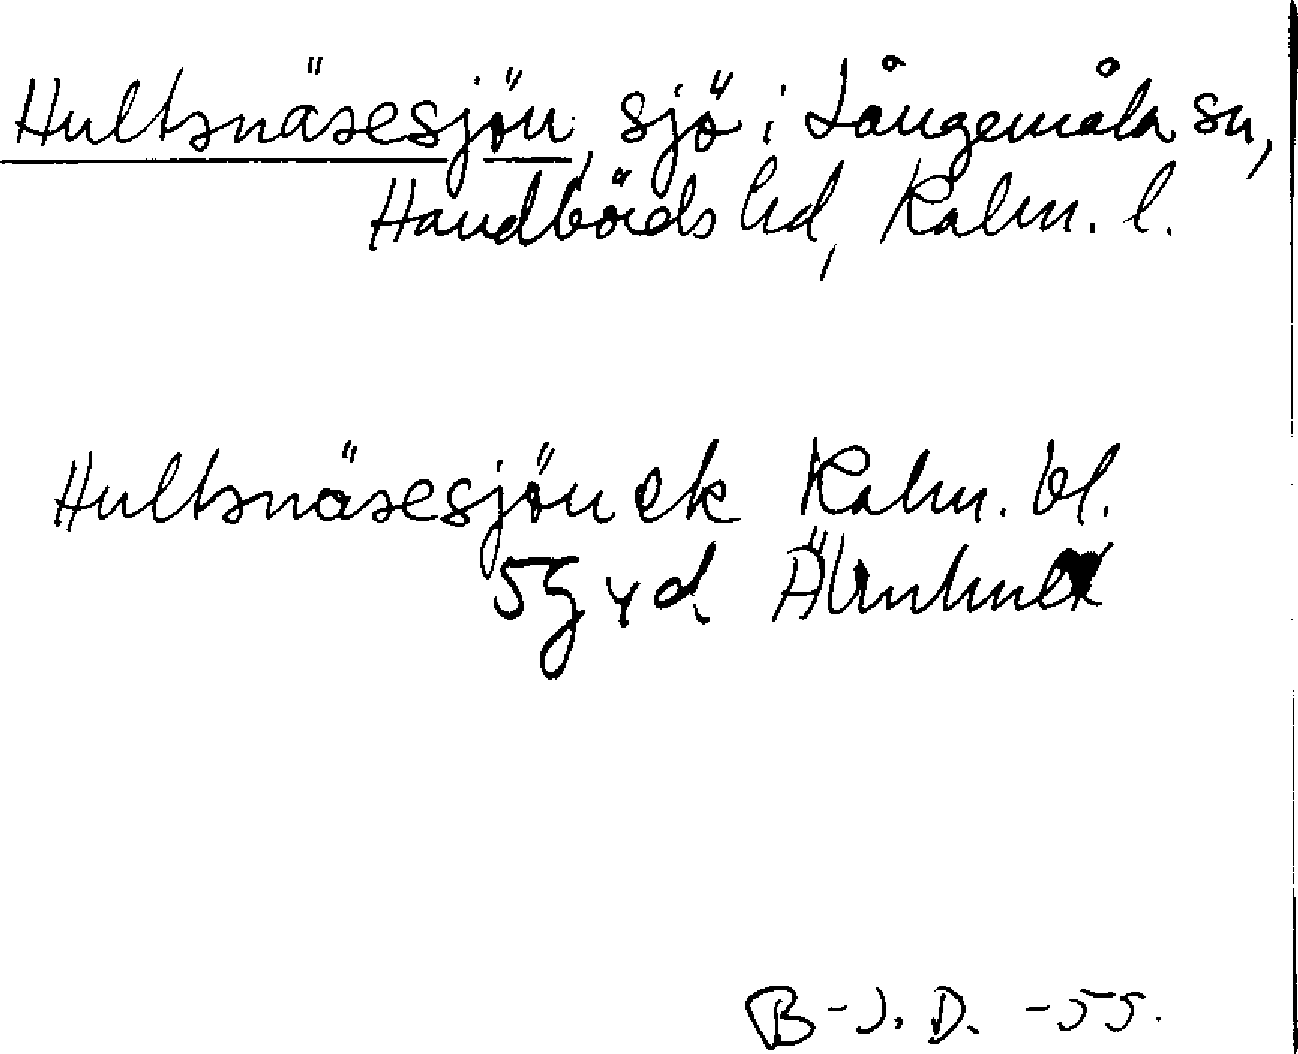 Hultsnäsesjön, sjö i Långemåla sn,
Handbörds hd, Kalm. l.
Hultsnäsesjön ek Kalm. bl.
5g yd Älmhult
B-J. D. -55.